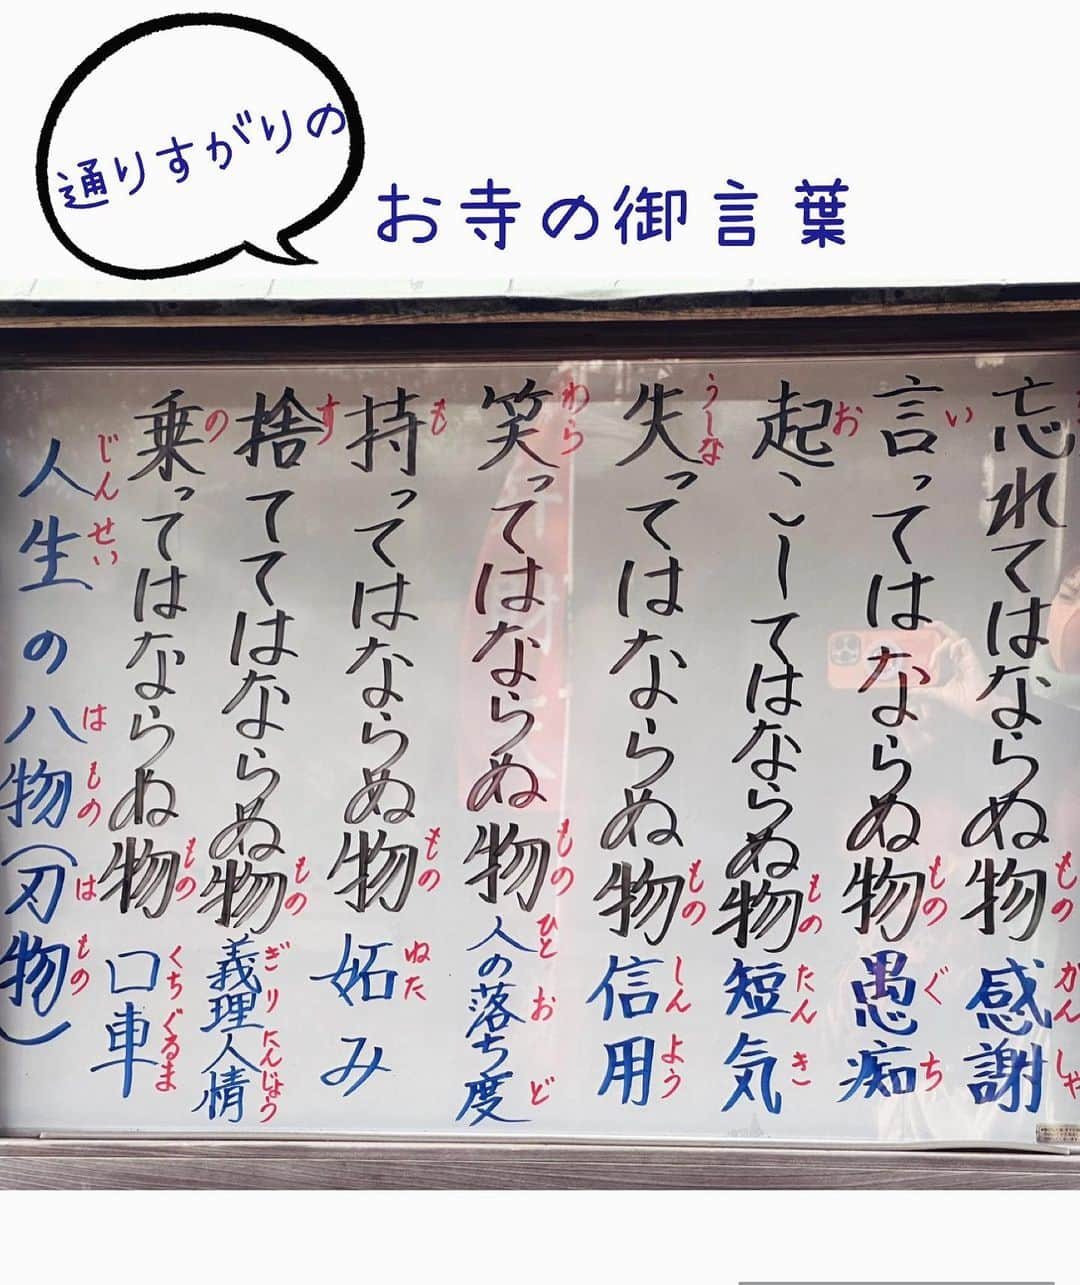 通りすがりの
お寺の御言葉
忘れてはならぬ物 感謝
言ってはならぬ物 愚痴
起こしてはならぬ物 短気
失ってはならぬ物 信用
笑ってはならぬ物 人の落ち度
持ってはならぬ物 妬み
捨ててはならぬ物 義理人情
乗ってはならぬ物 口車
人生の八物(刃物)
もの かんしゃ
い もの ぐち
お もの たんき
うしな もの しんよう
わら もの ひと お ど
も もの ねた
す もの ぎり にんじょう
の もの くちぐるま
じんせい はもの はもの